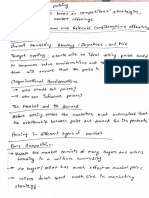 pricing
- based on competitors' strategies,
market offerings.
Internal and External considerations affecting
Overall Marketing Strategy, Objectives and Mix
Target costing : starts with an ideal selling price based
on consumer value considerations and then
targets costs that will ensure that the price is met.
Organizational considerations
→ who should set prices?
→ who can influence prices?
The Market and the Demand
Before setting prices the marketers must understand that
the relationship between price and demand for its products.
Pricing in different types of markets
Pure Competition:
→ the market consists of many buyers and sellers
trading in a uniform commodity
→ no buyer/seller has much effect on market price
→ sellers don't spend much time in marketing
strategy.